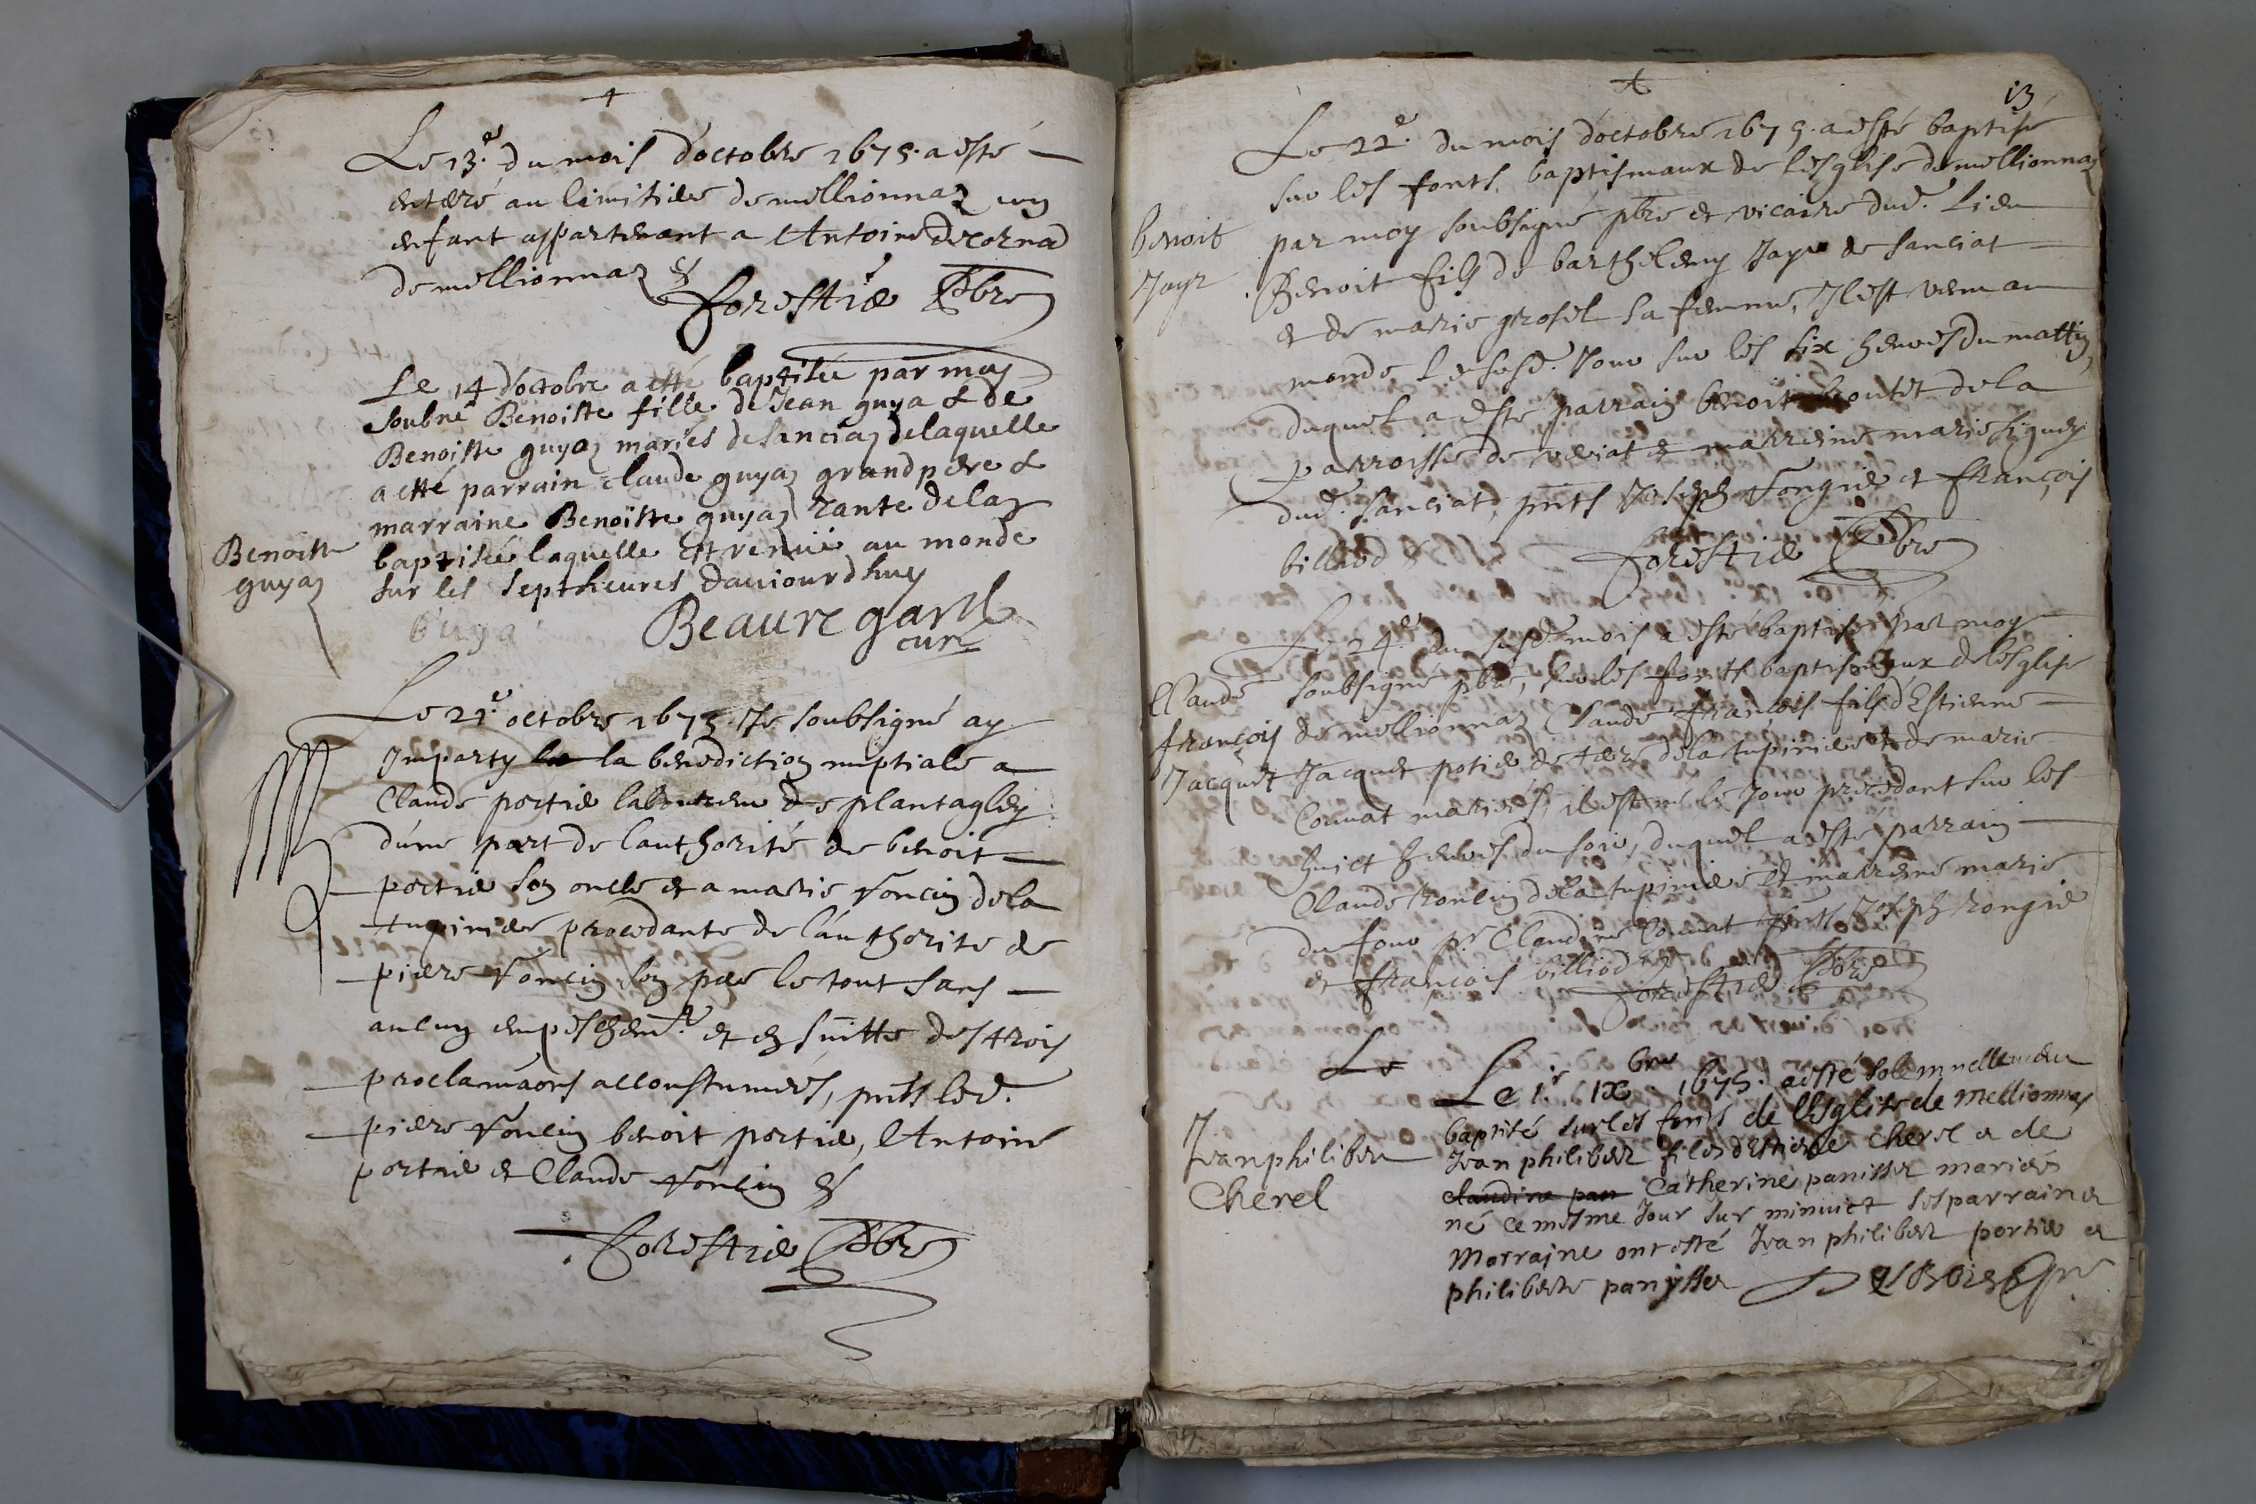 Le 13.e du mois d'octobre 1675. a esté
enterré au cimitiere de mellionnaz un
enfant appartenant a Anthoine decornad
de mellionnaz &
forestier Pbre
Le 14 d'octobre a etté baptisée par moy
soubné Benoiste fille de Jean guya & de
Benoiste guyaz mariés de sanciaz de laquelle
a etté parrain claude guyaz grand pere &
marraine Benoîste guyaz tante de la
baptisée laquelle est venue au monde
sur les sept heures d'aujourdhuy
Benoiste
guyaz
Guya
Beauregard
curé
Le 21.e octobre 1675. Je soubsigné ay
Imparty la la benediction nuptiale a
Claude portier laboureur de plantagley
d'une part de l'authorité de benoit
portier son oncle et a marie voncin de la
tupiniere procedante de l'authorité de
pierre voncin son pere le tout sans
aucun empeschemt. et en suitte des trois
proclamaons accoustumées, pnts led.
pierre voncin benoit portier, Anthoine
portier et Claude voncin &
forestier Pbre
13
Le 22.e du mois d'octobre 1675. a esté baptisé
sur les fonts baptismaux de l'esglise de mellionnaz
par moy soubsigné pbre et vicaire dud. Lieu
Benoit fils de barthelemy Jayr de sanciat
et de marie grosel sa femme, Il est venu au
monde le susd. Jour sur les six heures du mattin,
duquel a esté parrain benoit broutet de la
parroisse de veriat et marreine marie
dud. sanciat, pnts Joseph et françois
billiod &
forestier Pbre
benoit
Jayr
Le 24.e du susd. mois a esté baptisé par moy
soubsigné pbre, sur les fonts baptismaux de l'esglise
de mellionnaz Claude françois fils d'Estienne
Jacquet potier de terre de la tupiniere et de marie
Connat mariés, il est né le Jour precedant sur les
huict heures du soir, duquel a esté parrain
Claude voncin de la tupiniere et marreine marie
du four pr. Claudine Connat pnts Joseph
et françois billiod &
forestier Pbre
Claude
françois
Jacquet
Le
Le 1.r 1Xbre 1675. a esté solemnellemen
baptisé sur les fons de l'Esglise de Mellionnas
Jean philiber fils d'Estiene Cherel et de
claudine pan Catherine panisser mariés
né ce mesme Jour sur minuict ses parrain et
Marraine ont esté Jean philiber portier et
philiberte panysser
Jean philiber
Cherel